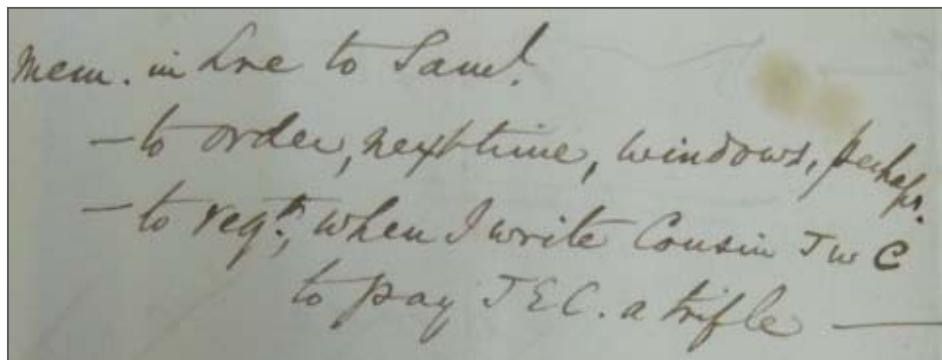 Mem. in Lre to Saml.
– to order, next time, windows, perhaps.
– to reqt., when I write Cousin J W C
to pay J E C. a trifle —